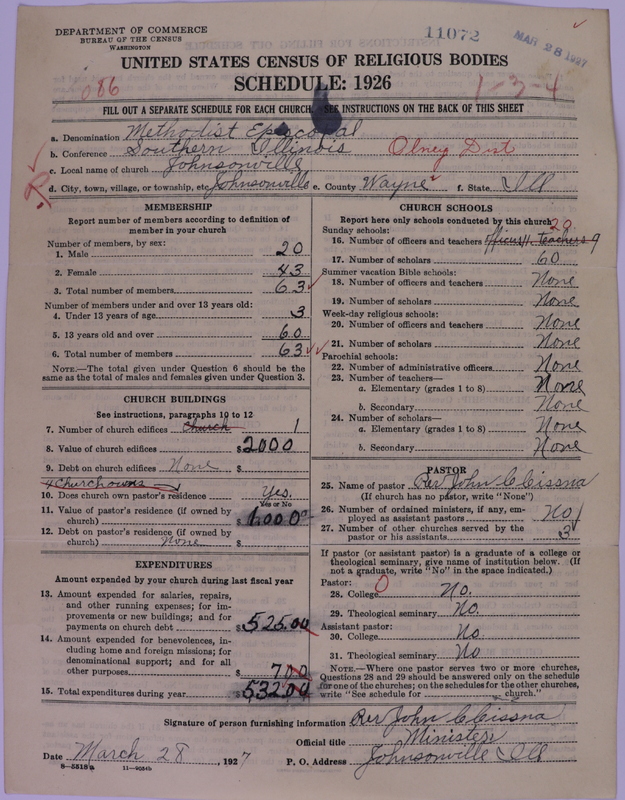 DEPARTMENT OF COMMERCE
BUREAU OF THE CENSUS
WASHINGTON
11072
MAR 28 1927
UNITED STATES CENSUS OF RELIGIOUS BODIES
SCHEDULE: 1926
086
1-3-4
FILL OUT A SEPARATE SCHEDULE FOR EACH CHURCH. SEE INSTRUCTIONS ON THE BACK OF THIS SHEET
a. Denomination Methodist Episcopal
b. Conference Southern Illinois Olney Dist
c. Local name of church Johnsonville
d. City, town, village, or township, etc. Johnsonville e. County Wayne f. State Ill
MEMBERSHIP
Report number of members according to definition of
member in your church
Number of members, by sex:
1. Male 20
2. Female 43
3. Total number of members 63
Number of members under and over 13 years old:
4. Under 13 years of age 3
5. 13 years old and over 60
6. Total number of members 63
NOTE.—The total given under Question 6 should be
same as the total of males and females given under Question 3.
CHURCH BUILDINGS
See instructions, paragraphs 10 to 12
7. Number of church edifices Church 1
8. Value of church edifices $2000
9. Debt on church edifices None $
4 Church owns
10. Does church own pastor's residence Yes.
Yes or No
11. Value of pastor's residence (if owned by
church) $1,000
12. Debt on pastor's residence (if owned by
church) None $
EXPENDITURES
Amount expended by your church during last fiscal year
13. Amount expended for salaries, repairs,
and other running expenses; for im-
provements or new buildings; and for
payments on church debt $525.00
14. Amount expended for benevolences, in-
cluding home and foreign missions; for
denominational support; and for all
other purposes $ 700
15. Total expenditures during year $532.00
CHURCH SCHOOLS
Report here only schools conducted by this church
Sunday schools: 20
16. Number of officers and teachers officers 11. teachers 9
17. Number of scholars 60
Summer vacation Bible schools:
18. Number of officers and teachers None
19. Number of scholars None
Week-day religious schools:
20. Number of officers and teachers None
21. Number of scholars None
Parochial schools:
22. Number of administrative officers None
23. Number of teachers—
a. Elementary (grades 1 to 8) None
b. Secondary None
24. Number of scholars—
a. Elementary (grades 1 to 8) None
b. Secondary None
PASTOR
25. Name of pastor Rev John C Cissna
(If church has no pastor, write "None")
26. Number of ordained ministers, if any, em-
ployed as assistant pastors No
27. Number of other churches served by the
pastor or his assistants 3
If pastor (or assistant pastor) is a graduate of a college or
theological seminary, give name of institution below. (If
not a graduate, write "No" in the space indicated.)
Pastor:
28. College 0 No.
29. Theological seminary No.
Assistant pastor:
30. College No
31. Theological seminary No
NOTE.—Where one pastor serves two or more churches,
Questions 28 and 29 should be answered only on the schedule
for one of the churches; on the schedules for the other churches,
write "See schedule for church."
Signature of person furnishing information Rev John C Cissna
Official title Minister
Date March 28, 1927 P. O. Address Johnsonville Ill
8-5518a 11-9034b